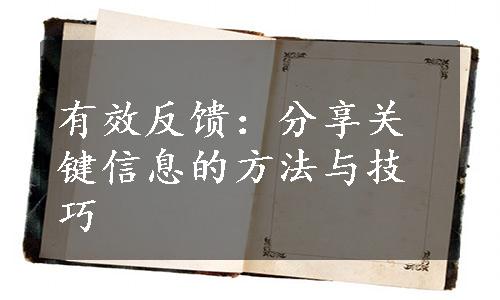 有效反馈：分享关
键信息的方法与技
巧